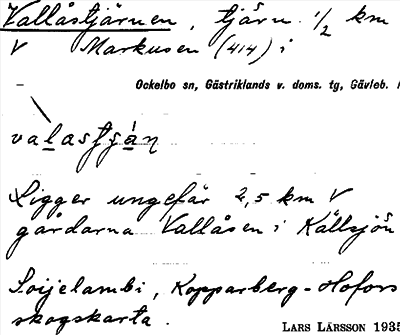 Vallåstjärnen, tjärn 1/2 km
V Markusen (414) i
Ockelbo sn, Gästriklands v. doms. tg, Gävleb.
Ligger ungefär 2,5 km V
gårdarna Vallåsen i Källsjön
Soijelambi, Kopparberg-Hofors
skogskarta.
LARS LARSSON 1935